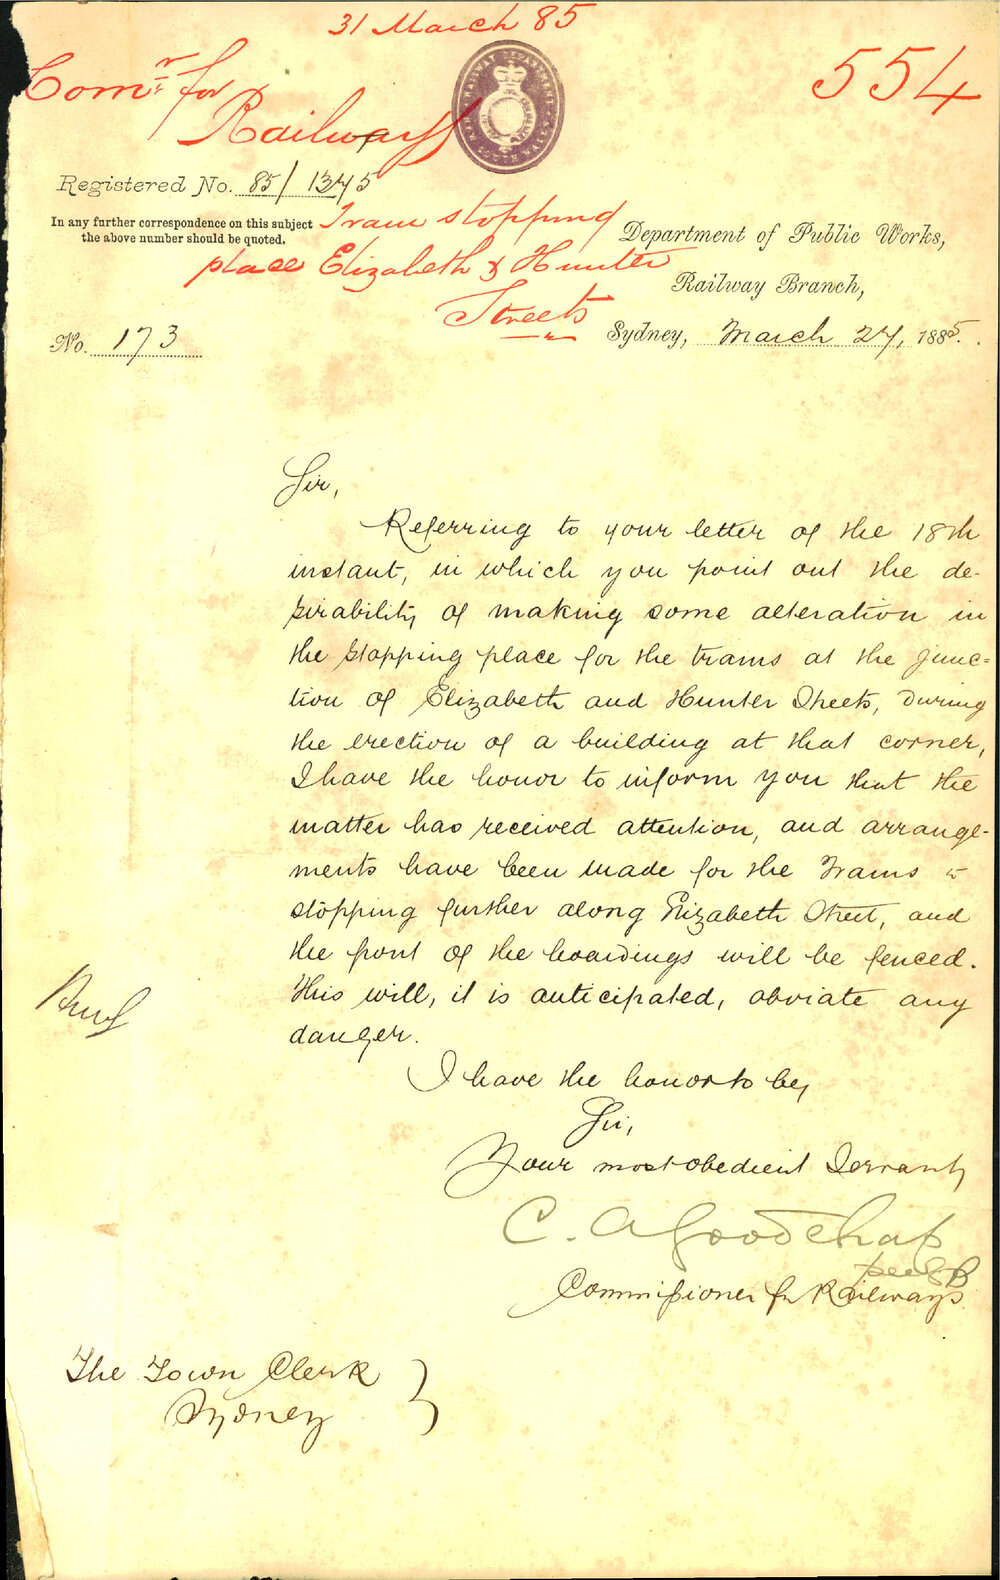 31 March 85
554
Comr for
Railways
RAILWAY DEPARTMENT
NEW SOUTH WALES
Registered No. 85/1345
In any further correspondence on this subject
the above number should be quoted.
Tram stopping
place Elizabeth & Hunter
Streets
Department of Public Works,
Railway Branch,
No. 173
Sydney, March 27, 1885.
Sir,
Referring to your letter of the 18th
instant, in which you point out the de-
sirability of making some alteration in
the stopping place for the trams at the junc-
tion of Elizabeth and Hunter Streets, during
the erection of a building at that corner,
I have the honor to inform you that the
matter has received attention, and arrange-
ments have been made for the Trams
stopping further along Elizabeth Street, and
the front of the hoardings will be fenced.
This will, it is anticipated, obviate any
danger.
I have the honor to be,
Sir,
Your most obedient Servant,
C. A Goodchap
Commissioner for Railways.
The Town Clerk
Sydney